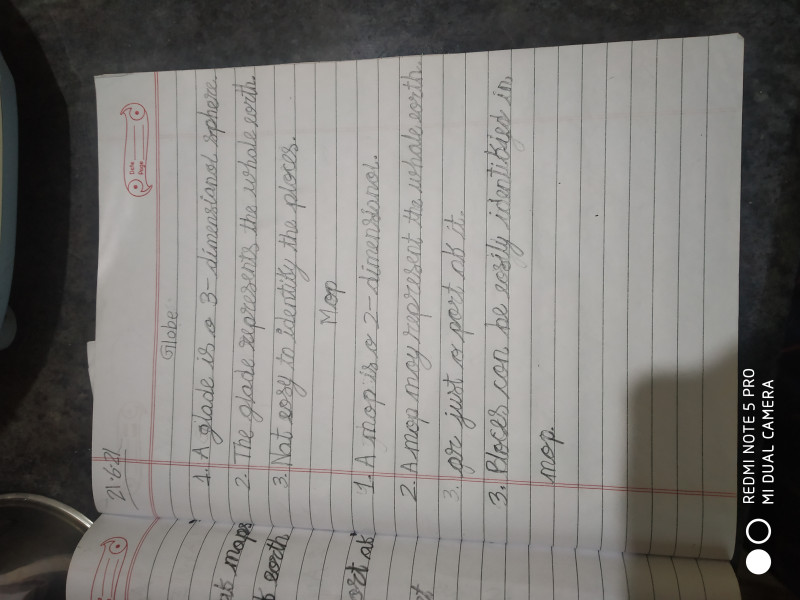 Date
Page
21.6.21
Globe
1. A glade is a 3-dimensianal sphere.
2. The glade represents the whale earth.
3. Nat easy to identify the places.
Map
1. A map is a 2-dimensianal.
2. A map may represent the whale earth.
3. ar just a part ak it.
3. Places can be easily identikied in
map.
ak maps
k earth
art ak
REDMI NOTE 5 PRO
MI DUAL CAMERA